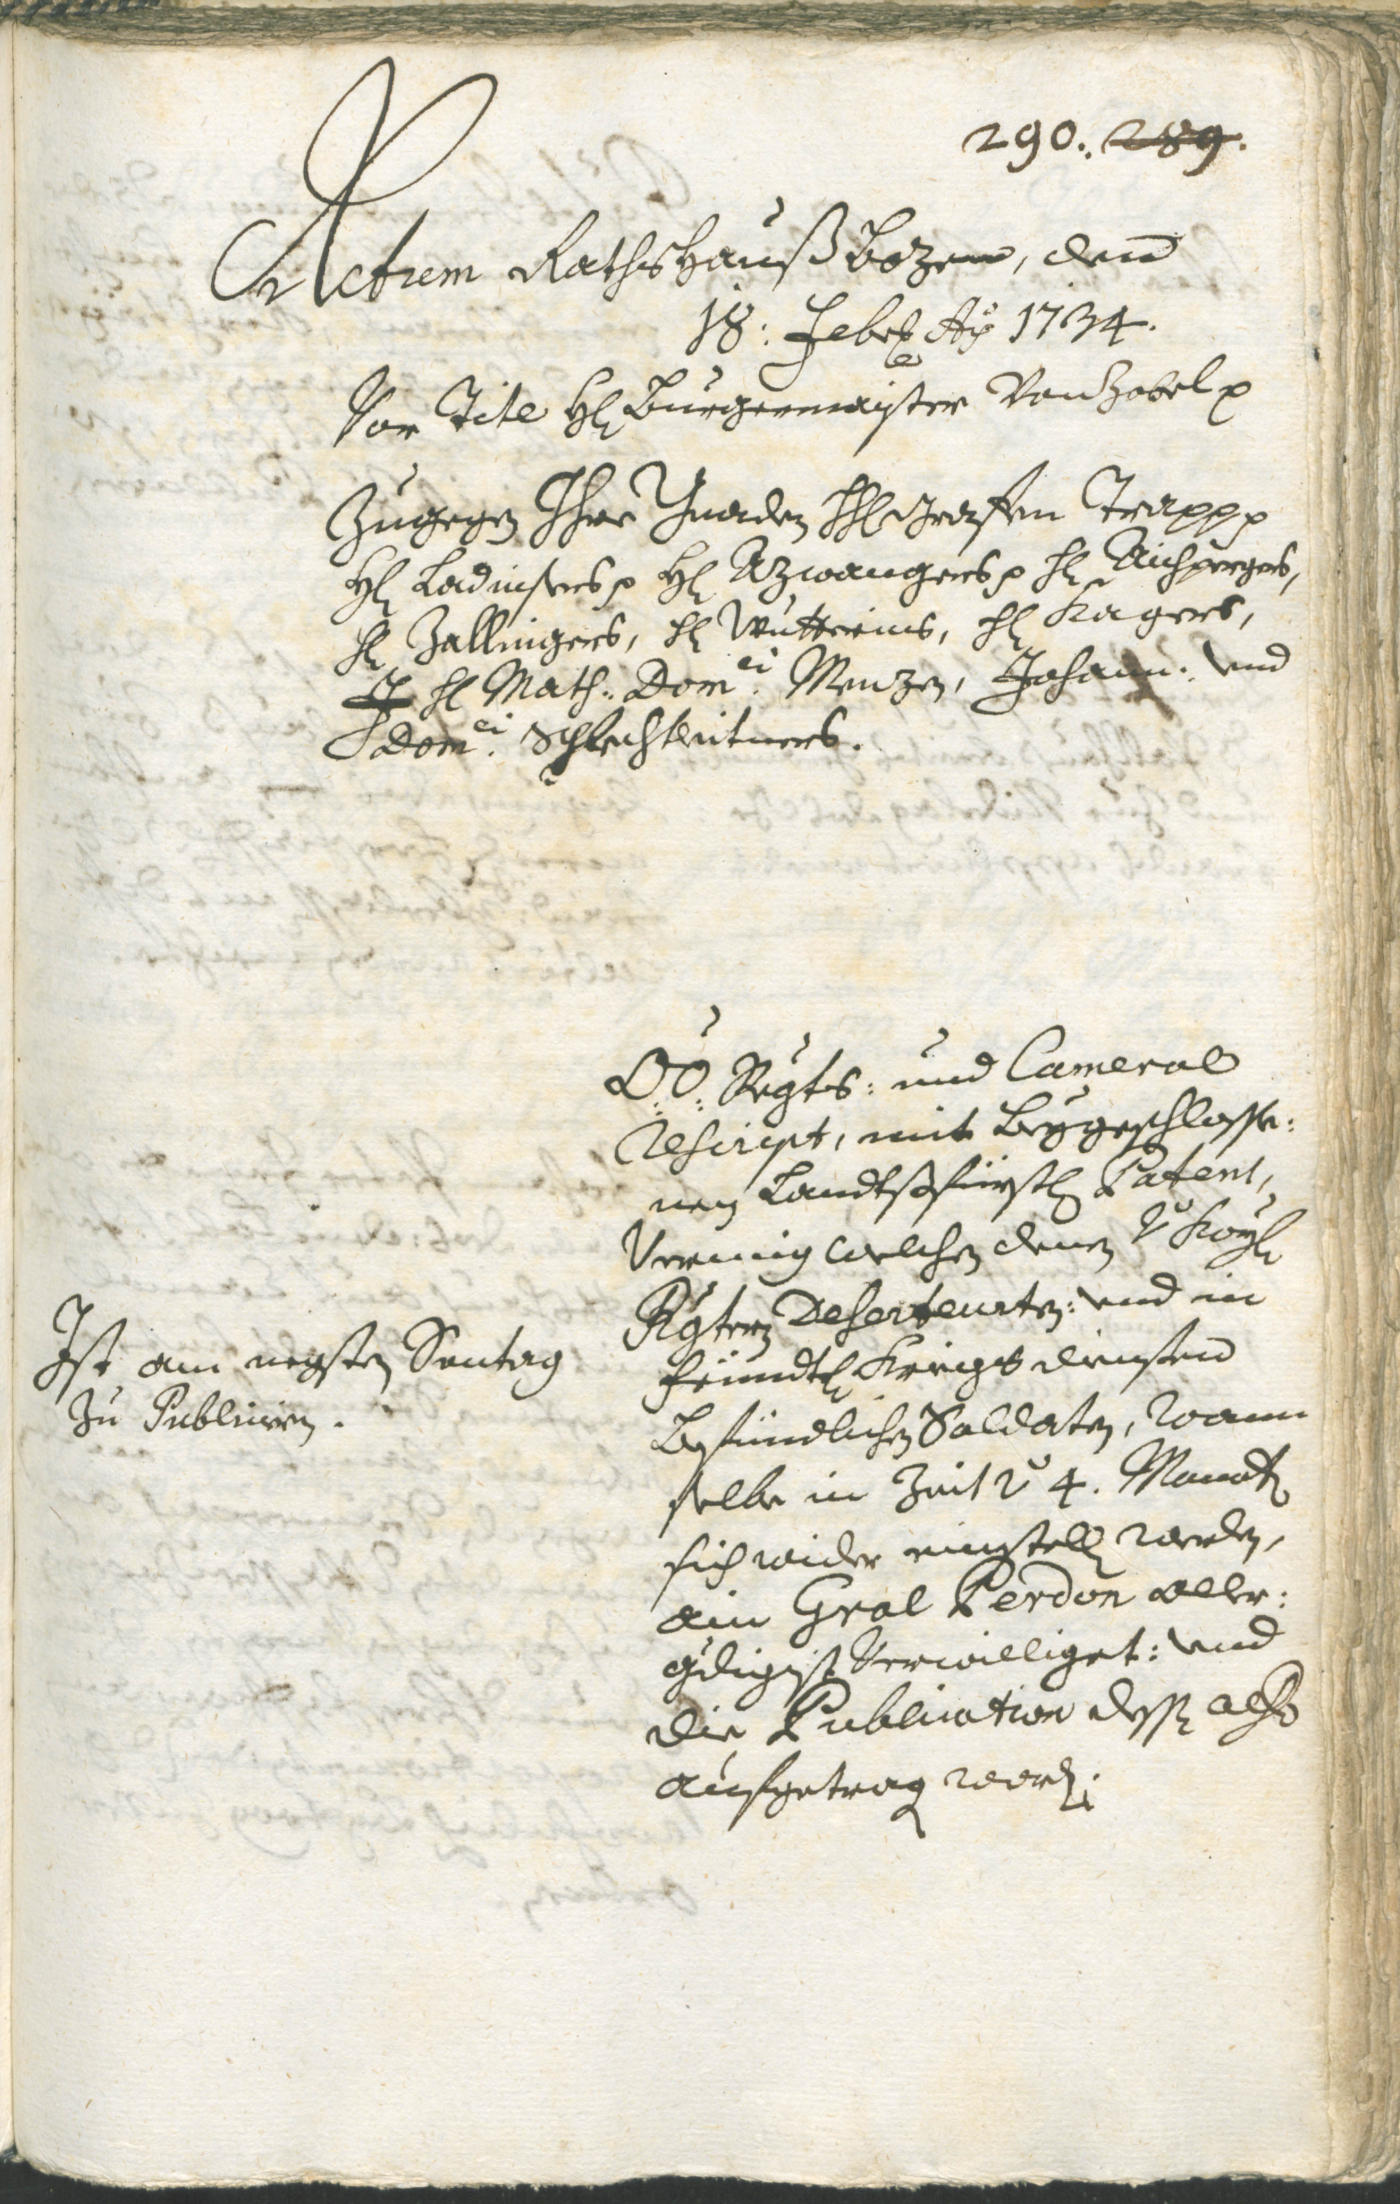 290. 289.
Actum Rathshauß Bozen, den
18: Febr: Ao 1734.
Vor Titl H: Burgermaister Von Zobel p
Zugegen Ihre Gnaden H: Graffen Trapp p
H: Ladinsers p H: Azwangers p H: Aichpergers,
H: Zallingers, H: Wutterins, H: Kagers,
H: Math: Domci: Menzen, Johann: und
Domci: Schlechtleitners.
OÖ: Regts: und Cameral
Rescript, mit Beygeschlosse:
nen Landtsfürstl: Patent,
Vermig welchen denen v: Kayl:
Rgtern Deserteurten: und in
feündtl: Kriegs diensten
Befündlichen Soldaten, wann
selbe in Zeit v: 4. Monath
sich wider einstellen werden,
ain Gral Perdon aller:
gdigist Verwilliget: und
die Publication dessen also
aufgetragen word:
Ist am negsten Sontag
Zu Publicirn.